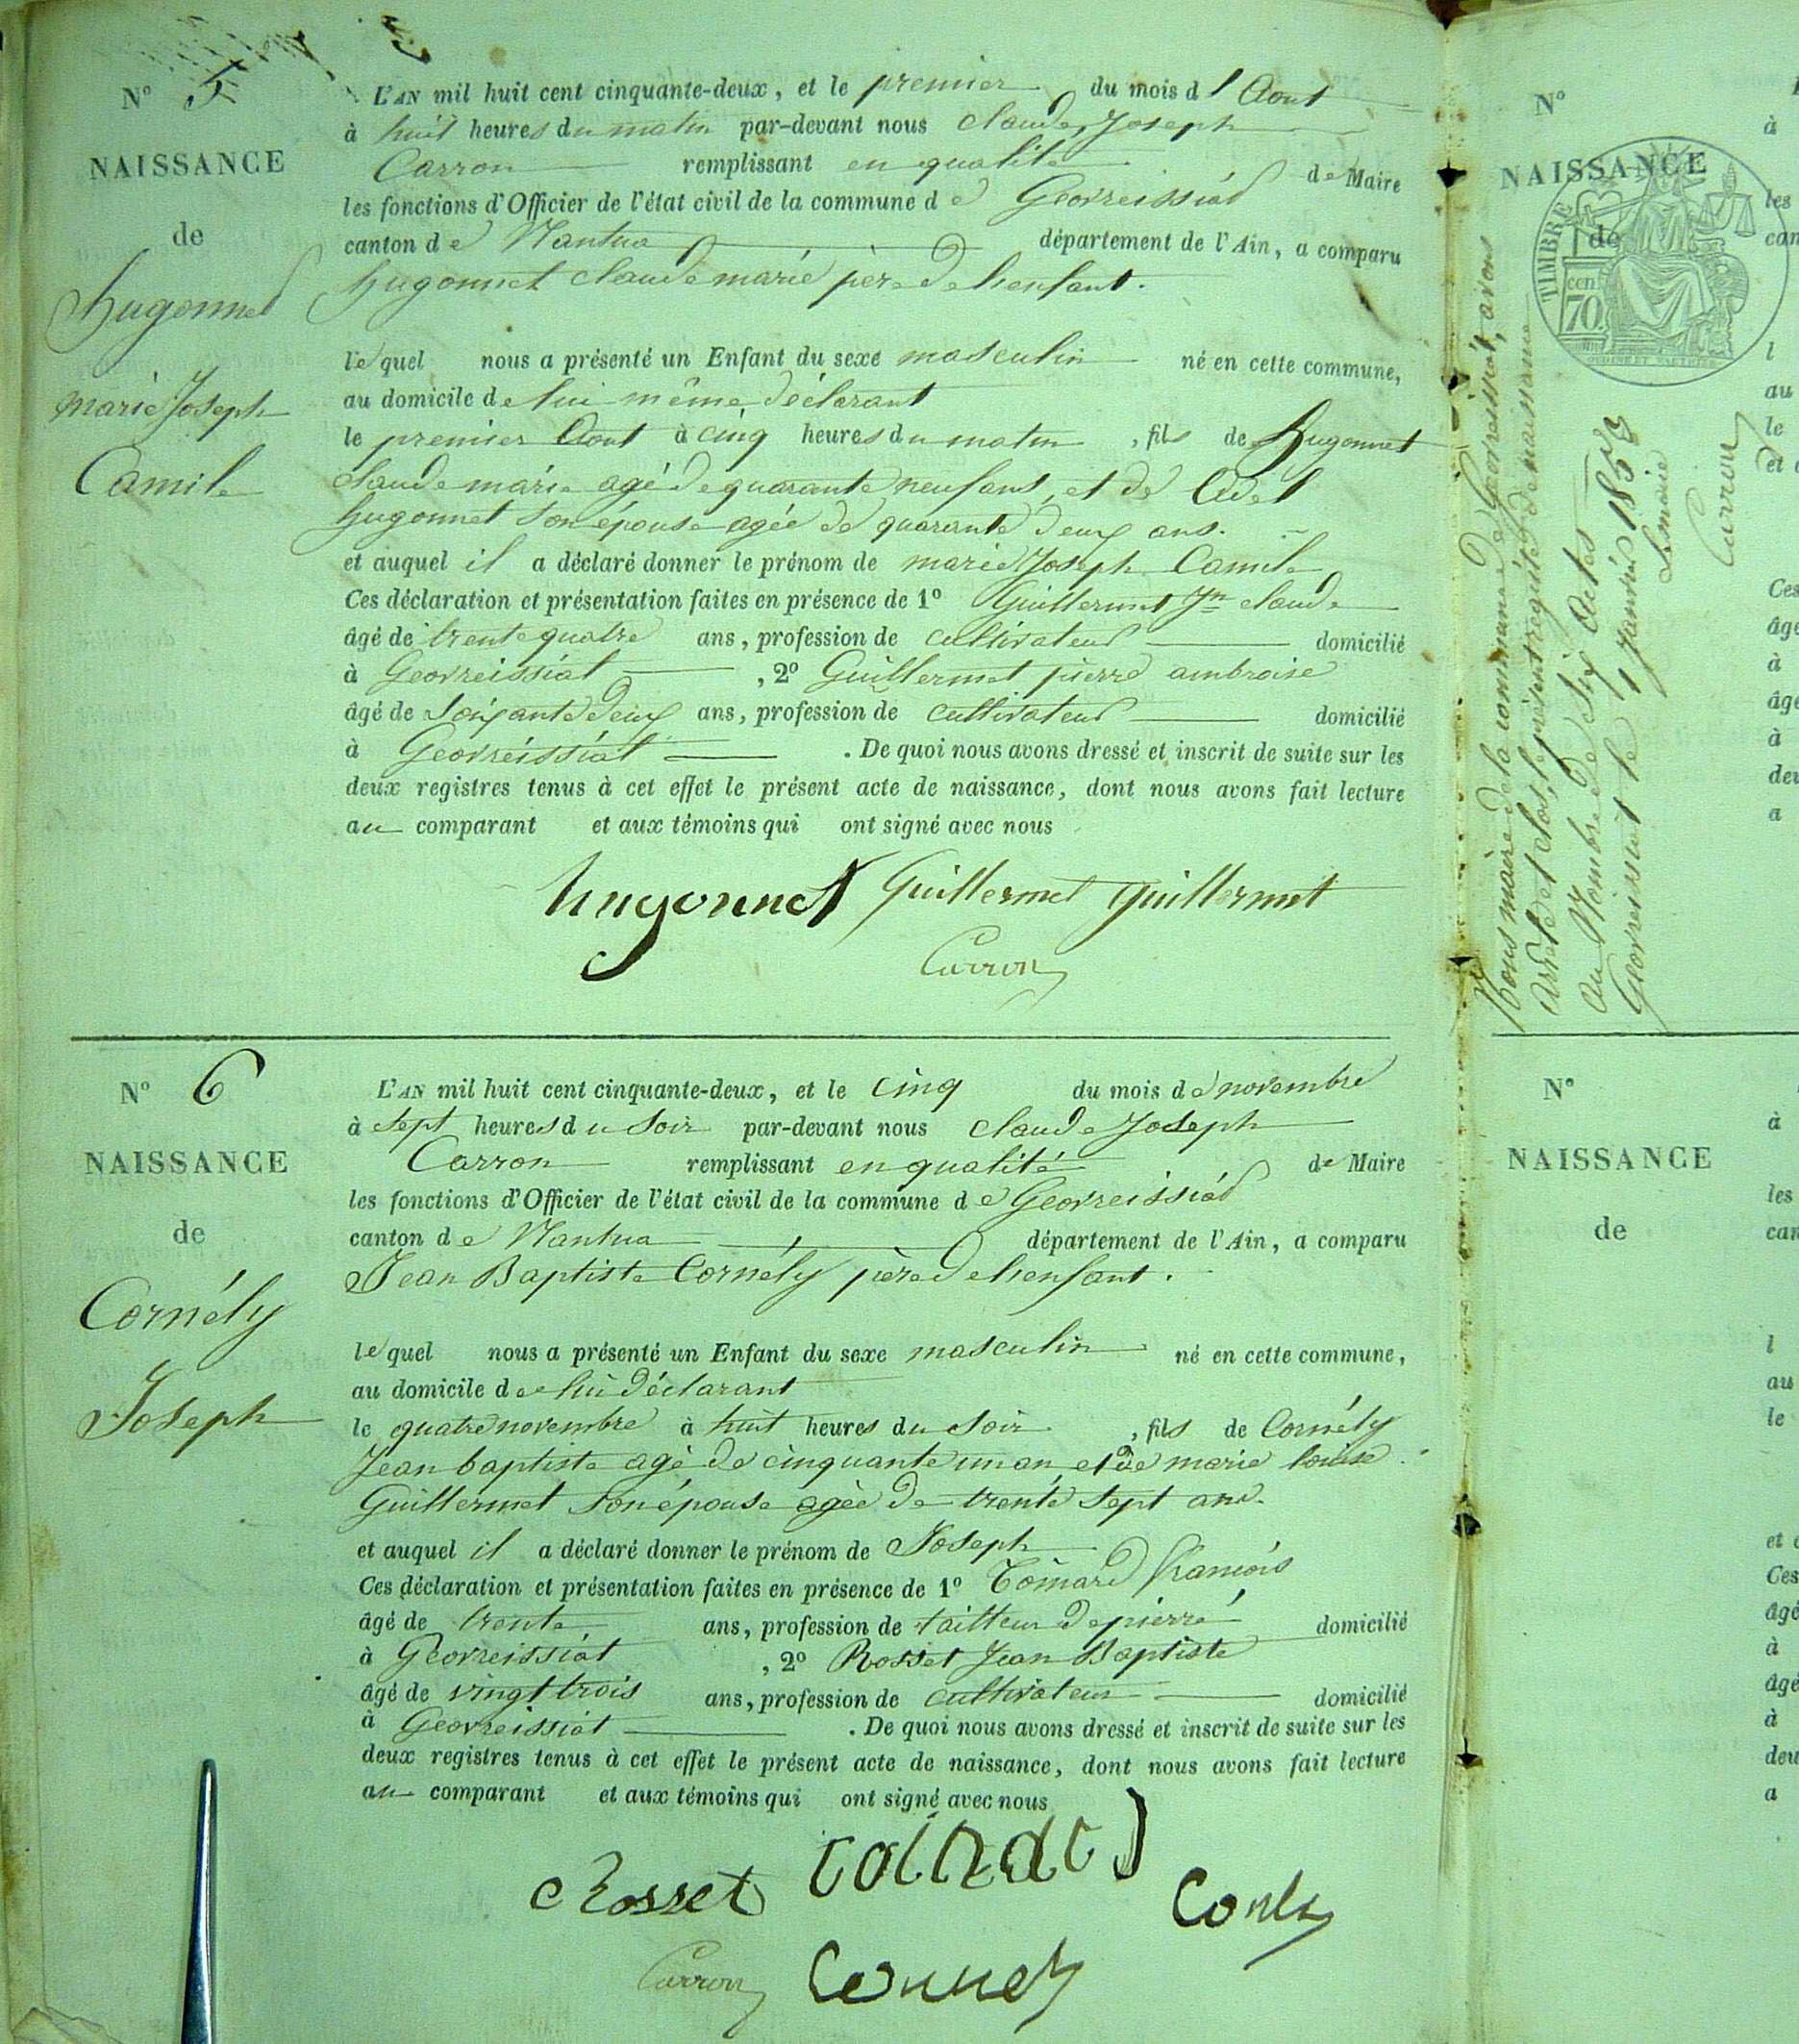 N° 5
NAISSANCE
de
hugonnet
marie Joseph
Camile
L'AN mil huit cent cinquante-deux, et le premier du mois d'Aout
à huit heures du matin par-devant nous claude Joseph
Carron remplissant en qualité de Maire
les fonctions d'Officier de l'état civil de la commune de Geovreissiat
canton de Nantua département de l'Ain, a comparu
hugonnet claude marie père de l'enfant.
lequel nous a présenté un Enfant du sexe masculin né en cette commune,
au domicile de lui même déclarant
le premier Aout à cinq heures du matin, fils de hugonnet
claude marie agé de quarante neuf ans, et de
hugonnet son épouse agée de quarante deux ans.
et auquel il a déclaré donner le prénom de marie Joseph Camile
Ces déclaration et présentation faites en présence de 1° Guillermet Jn claude
âgé de trente quatre ans, profession de cultivateur domicilié
à Geovreissiat, 2° Guillermet pierre ambroise
âgé de soixante deux ans, profession de cultivateur domicilié
à Geovreissiat. De quoi nous avons dressé et inscrit de suite sur les
deux registres tenus à cet effet le présent acte de naissance, dont nous avons fait lecture
au comparant et aux témoins qui ont signé avec nous
hugonnet Guillermet guillermet
Carron
N° 6
NAISSANCE
de
Cornély
Joseph
L'AN mil huit cent cinquante-deux, et le cinq du mois de novembre
à sept heures du soir par-devant nous claude Joseph
Carron remplissant en qualité de Maire
les fonctions d'Officier de l'état civil de la commune de Geovreissiat
canton de Nantua département de l'Ain, a comparu
Jean Baptiste Cornély père de l'enfant.
lequel nous a présenté un Enfant du sexe masculin né en cette commune,
au domicile de lui déclarant
le quatre novembre à huit heures du soir, fils de Cornély
Jean baptiste agé de cinquante un an et de marie louise
Guillermet son épouse agée de trente sept ans.
et auquel il a déclaré donner le prénom de Joseph
Ces déclaration et présentation faites en présence de 1°
âgé de trente ans, profession de tailleur de pierre domicilié
à Geovreissiat, 2° Rosset Jean Baptiste
âgé de vingt trois ans, profession de cultivateur domicilié
à Geovreissiat. De quoi nous avons dressé et inscrit de suite sur les
deux registres tenus à cet effet le présent acte de naissance, dont nous avons fait lecture
au comparant et aux témoins qui ont signé avec nous
Rosset
Carron
Nous maire de la commune de Geovreissiat, avons
arrêté et clos, le présent registre de naissance
au Nombre de Six Actes
Geovreissiat le 1 Janvier 1853
Le maire
Carron
N°
NAISSANCE
de
TIMBRE
cen.
70
à
les
can
l
au
le
et
Ces
âgé
à
âgé
à
deu
a
N°
NAISSANCE
de
à
les
can
l
au
le
et
Ces
âgé
à
âgé
à
deu
a